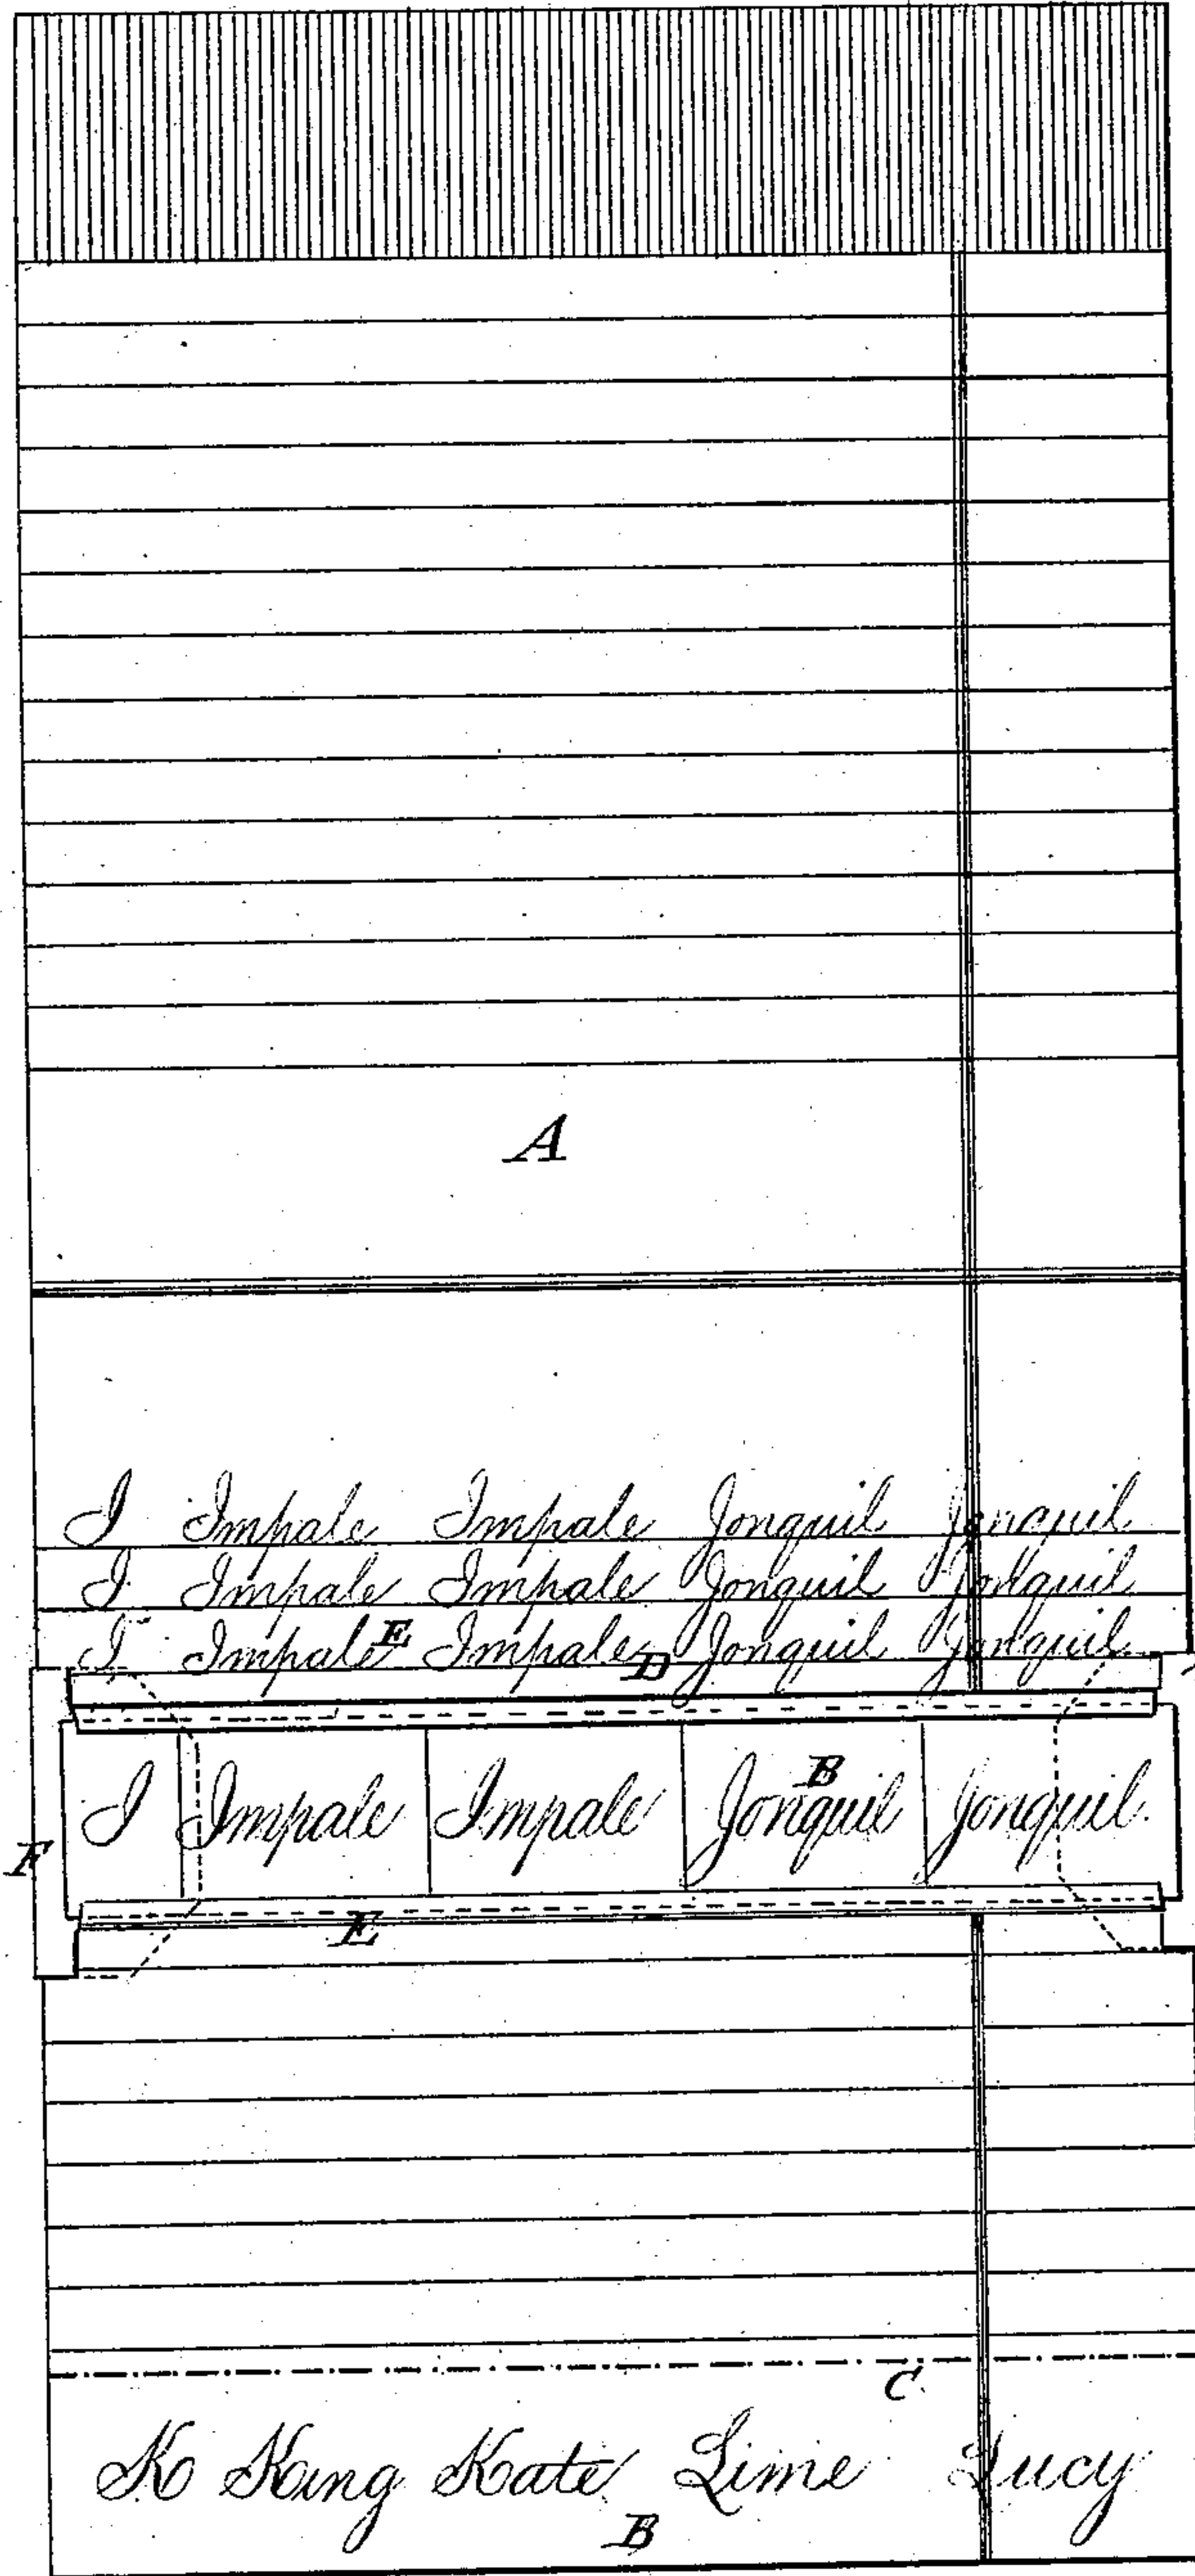 A
I Impale Impale Jonquil Jonquil
I Impale Impale Jonquil Jonquil
E
I Impale Impale Jonquil Jonquil
D
B
I Impale Impale Jonquil Jonquil
F
E
C
K King Kate Lime Lucy
B